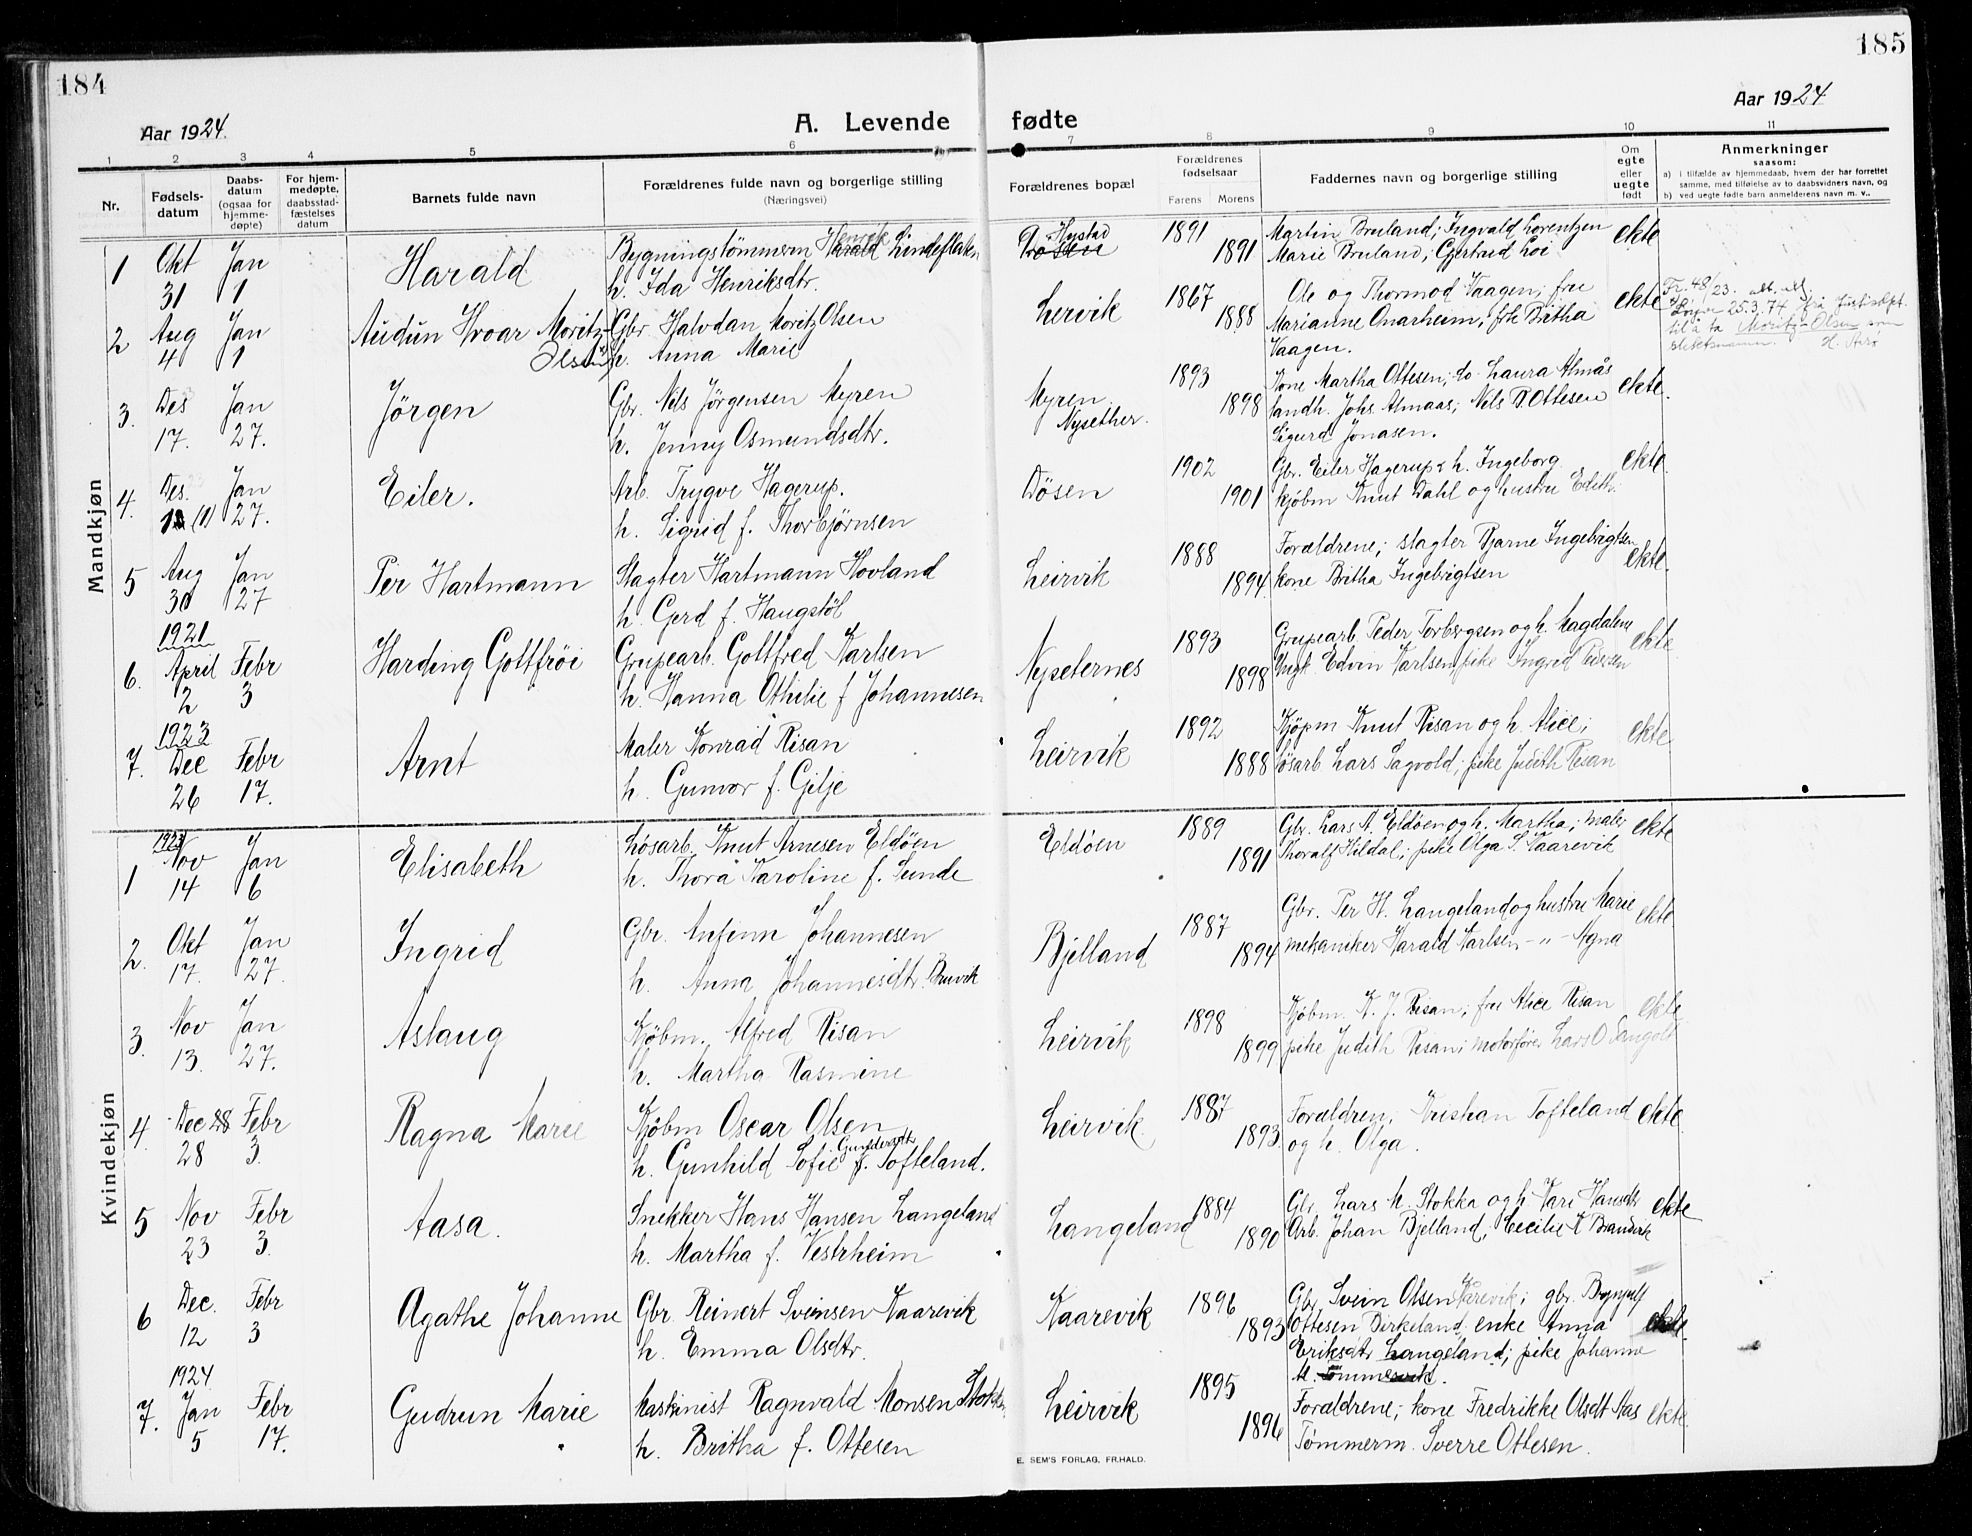 184
185
Aar 1924.
A. Levende fødte
Aar 1924
1 2 3 4 5 6 7 8 9 10 11
Nr.
Fødsels-
datum
Daabs-
datum
(ogsaa for
hjemme-
døpte)
For hjem-
medøpte,
daabsstad-
fæstelses
datum
Barnets fulde navn
Forældrenes fulde navn og borgerlige stilling
(Næringsvei)
Forældrenes bopæl
Forældrenes
fødselsaar
Farens Morens
Faddernes navn og borgerlige stilling
Om
egte
eller
uegte
født
Anmerkninger
saasom:
a) i tilfælde av hjemmedaab, hvem der har forrettet
samme, med tilføielse av to daabsvidners navn, og
b) ved uegte fødte barn anmelderens navn m. v..
Mandkjøn
1 Okt Jan Harald Bygningstømmerm Henrik Harald Lindeflaten Hystad Døsen 1891 Martin Bruland; Ingvald Lorentzen ekte
31 1 h. Ida Henriksdtr. 1891 Marie Bruland; Gjertrud Loi
2 Aug Jan Audun Hroar Moritz- Gbr. Halvdan Moritz Olsen Lervik 1867 Ole og Thormod Vaagen; fru ekte Fr. 48/23.
4 1 Olsen h. Anna Marie 1888 Marianne Onarheim, frk Britha 25.3.74 fra Justisdpt.
Vaagen. til å ta Moritz-Olsen som
slektsnamn.
3. Des Jan Jörgen Gbr. Nils Jörgensen Myren Myren 1893 Kone Martha Ottesen; do. Laura Almås ekte.
17. 27. h. Jenny Osmundsdtr. Nysether. 1898 landh. Johs Almaas; Nils B. Ottesen
Sigurd Jonasen.
4. Des. Jan Eiler. Arb. Trygve Hagerup. Døsen 1902 Gbr. Eiler Hagerup & h. Ingeborg. ekte.
(1) 27. h. Sigrid f. Thorbjørnsen 1901 kjöbm Knut Dahl og hustru Edith.
5 Aug Jan Per Hartmann Slagter Hartmann Hovland Leirvik 1888 Forældrene; slagter Bjarne Ingebrigtsen ekte.
30 27 h. Gerd f. Haugstøl 1894 kone Britha Ingebrigtsen
1921
6. April Febr Harding Gottfrøi Grupearb. Gottfred Karlsen Nyseternes 1893 Grupearb. Peder Torbergsen og h. Magdalene ekte.
2 3 h. Hanna Othilie f Johannesen 1898 Ungk. Edvin Karlsen, pike Ingrid
1923
7. Dec Febr Arnt Maler Konrad Risan Leirvik 1892 Kjøpm Knut Risan og h. Alice; ekte
26 17. h. Gunvor f. Gilje 1888 Løsarb. Lars Sagvold; pike Judith Risan
Kvindekjøn
1923
1 Nov Jan Elisabeth Løsarb. Knut Arnesen Eldöen Eldöen 1889 Gbr. Lars A. Eldöen og h. Martha; maler ekte
14 6 h. Thora Karoline f. Lunde 1891 Thoralf Hildal; pike Olga S. Kaarevik
2. Okt Jan Ingrid Gbr. Anfinn Johannesen Bjelland 1887 Gbr. Per H. Langeland og hustru Marie ekte.
17. 27. h. Anna Johannesdtr. Bruvik 1894 mekaniker Harald Karlsen -"- Agna
3. Nov Jan Aslaug Kjöbm. Alfred Risan Leirvik 1898 Kjöbm. K. J. Risan; fru Alice Risan ekte
13. 27. h. Martha Rasmine 1899 pike Judith Risan; motorfører Lars O
4. Dec 28 Febr Ragna Marie Kjöbm Oscar Olsen Leirvik. 1887 Forældren; Kristian Tofteland ekte.
28 3. h. Gunhild Sofie Gundersdtr f. Tofteland. 1893. og h. Olga.
5 Nov Febr Aasa. Snekker Hans Hansen Langeland Langeland 1884 Gbr. Lars M. Stokka og h. Kari Hansdtr ekte
23 3. h. Martha f. Vestrheim 1890 Arb. Johan Bjelland, Cecilie K
6 Dec. Febr Agathe Johanne Gbr Reinert Sveinsen Kaarevik Kaarevik 1896 Gbr Svein Olsen Kårevik; gbr. Brynjulf
12 3 h. Emma Olsdtr. 1893 Ottesen Birkeland; enke Anna ekte.
Eriksdtr Langeland; pike Johanne
M. Tømmervik.
1924
7. Jan Febr Gudrun Marie Maskinist Ragnvald Monsen Stokka Leirvik 1895 Forældrene; kone Fredrikke Olsdt Aas ekte.
5 17. h. Britha f. Ottesen 1896 Tømmerm. Sverre Ottesen.
E. SEM'S FORLAG, FR.HALD.